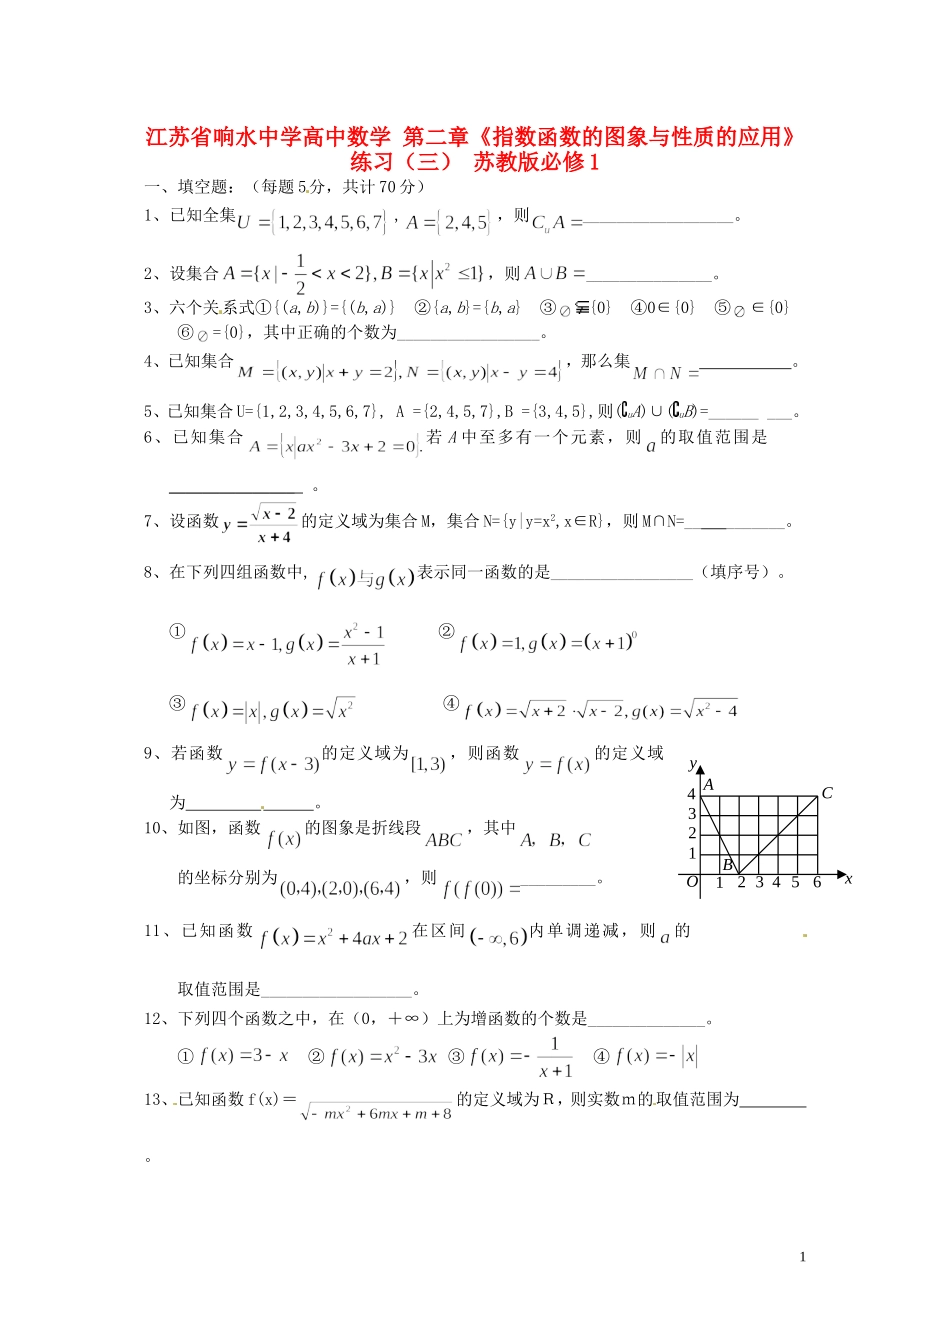 江苏省响水中学高中数学 第二章《指数函数的图象与性质的应用》
练习（三） 苏教版必修1
一、填空题：（每题5分，共计70分）
1、已知全集U={1,2,3,4,5,6,7}，A={2,4,5}，则C_uA__________________。
2、设集合A={x|-1/2<x<2},B={x|x²≤1}，则A∪B=_______________。
3、六个关系式①{(a,b)}={(b,a)} ②{a,b}={b,a} ③∅⫋{0} ④0∈{0} ⑤∅∈{0}
⑥∅={0}，其中正确的个数为_________________。
4、已知集合M={(x,y)|x+y=2},N={(x,y)|x-y=4}，那么集M∩N=___________。
5、已知集合U={1,2,3,4,5,6,7}, A ={2,4,5,7},B ={3,4,5},则(∁uA)∪(∁uB)=______ ___。
6、已知集合A={x|ax²-3x+2=0}.若A中至多有一个元素，则a的取值范围是
________________。
7、设函数y=√(x-2)/(x+4)的定义域为集合M，集合N={y|y=x²,x∈R}，则M∩N=____________。
8、在下列四组函数中，f(x)与g(x)表示同一函数的是_________________（填序号）。
①f(x)=x-1,g(x)=(x²-1)/(x+1) ②f(x)=1,g(x)=(x+1)⁰
③f(x)=|x|,g(x)=√(x²) ④f(x)=√(x+2)·√(x-2),g(x)=√(x²-4)
9、若函数y=f(x-3)的定义域为[1,3)，则函数y=f(x)的定义域
为_______________。
10、如图，函数f(x)的图象是折线段ABC，其中A，B，C
的坐标分别为(0,4),(2,0),(6,4)，则f(f(0))=_________。
y
A
C
4
3
2
1
B
O 1 2 3 4 5 6 x
11、已知函数f(x)=x²+4ax+2在区间(-∞,6)内单调递减，则a的
取值范围是__________________。
12、下列四个函数之中，在（0，＋∞）上为增函数的个数是______________。
①f(x)=3-x ②f(x)=x²-3x ③f(x)=-1/(x+1) ④f(x)=-|x|
13、已知函数f(x)＝√(-mx²+6mx+m+8)的定义域为R,则实数m的取值范围为________
。
1